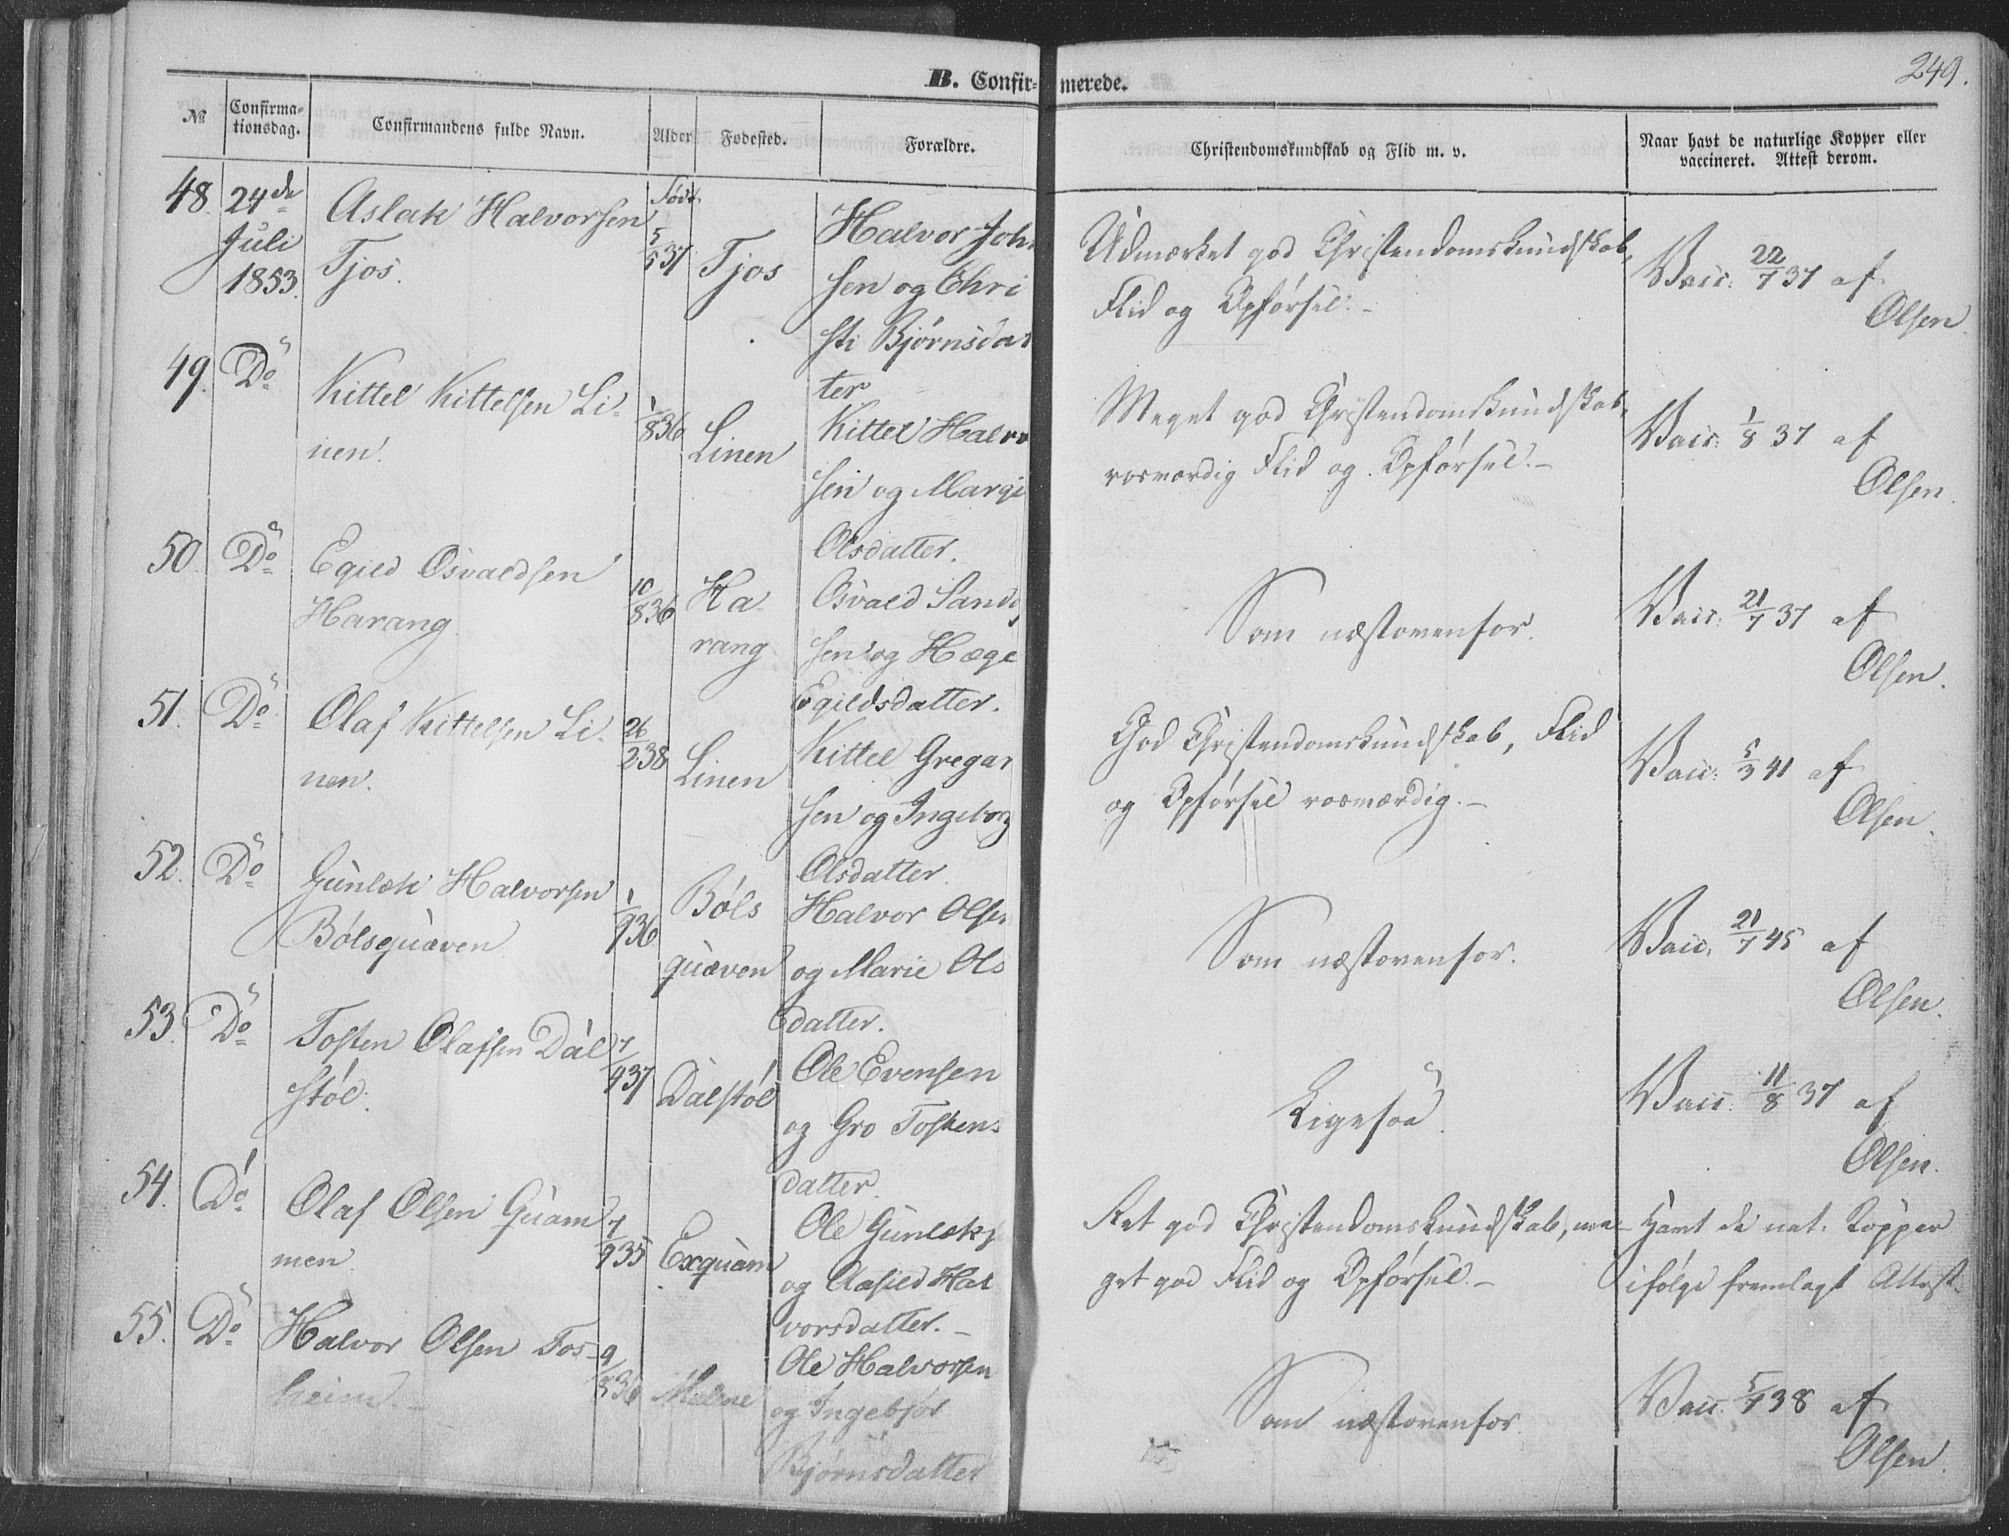 249.
B. Confirmerede.
№ Confirmationsdag. Confirmandens fulde Navn. Alder Fødested. Forældre. Christendomskundskab og Flid m. v. Naar havt de naturlige Kopper eller vaccineret. Attest derom.
48. 24de Juli 1853. Aslak Halvorsen Tjos. Født 5/5 37 Tjos Halvor Joh
sen og Chri
sti Bjørnsdat
ter
Udmærket god Christendomskundskab,
Flid og Opførsel. –
Vacc: 22/7 37 af
Olsen.
49. Do Kittel Kittelsen Li-
nen. 1/8 36 Linen Kittel Halvor
sen og Margi
Olsdatter.
Meget god Christendomskundskab,
rosværdig Flid og Opførsel. –
Vacc: 1/8 37 af
Olsen.
50. Do Egild Osvaldsen
Harang 10/8 36 Ha-
rang Osvald Sand
sen og Hæge
Egildsdatter.
Som næstovenfor.
Vacc: 21/7 37 af
Olsen.
51. Do Olaf Kittelsen Li-
nen. 26/2 38 Linen Kittel Gregar
sen og Ingeborg
Olsdatter.
God Christendomskundskab, Flid
og Opførsel rosværdig. –
Vacc: 5/3 41 af
Olsen.
52. Do Gunlæk Halvorsen
Bølsquæven 1/9 36 Bøls
quæven Halvor Olsen
og Marie Ols
datter.
Som næstovenfor.
Vacc. 21/7 45 af
Olsen.
53. Do Tosten Olafsen Dal
støl. 7/4 37 Dalstøl Ole Evensen
og Gro Tostens
datter.
Ligesaa.
Vacc: 11/8 37 af
Olsen.
54. Do Olaf Olsen Guam
men. 7/9 35 Exquam Ole Gunleks
og Aasild Hal
vorsdatter. –
Ret god Christendomskundskab, me-
get god Flid og Opførsel. –
Havt de nat. Kopper
ifølge fremlagt Attest.
55. Do Halvor Olsen Tos-
heim 9/5 36 Ole Halvorsen
og Ingebjør
Bjørnsdatter
Som næstovenfor.
Vacc. 5/7 38 af
Olsen.